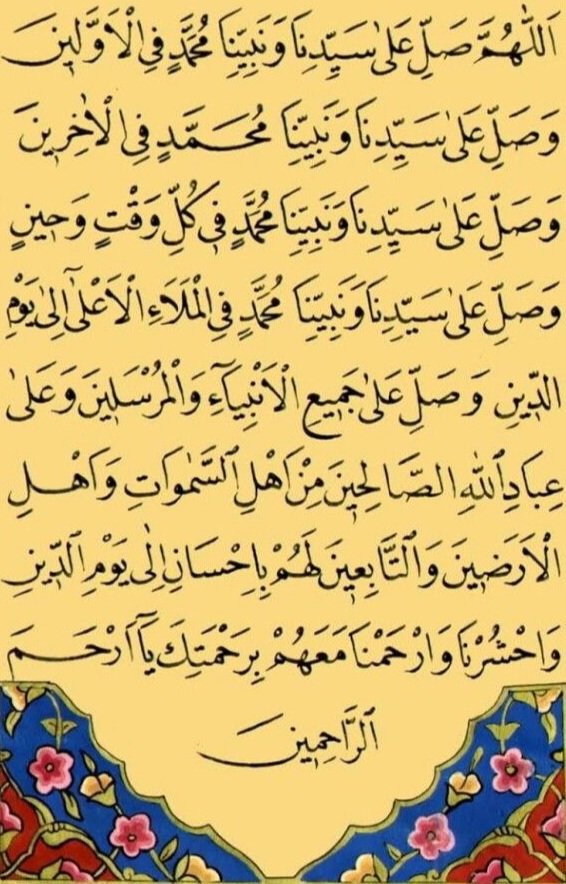 اَللّٰهُمَّ صَلِّ عَلٰى سَيِّدِنَا وَنَبِيِّنَا مُحَمَّدٍ فِي الْاَوَّلِينَ
وَصَلِّ عَلٰى سَيِّدِنَا وَنَبِيِّنَا مُحَمَّدٍ فِي الْاٰخِرِينَ
وَصَلِّ عَلٰى سَيِّدِنَا وَنَبِيِّنَا مُحَمَّدٍ فِي كُلِّ وَقْتٍ وَحِينٍ
وَصَلِّ عَلٰى سَيِّدِنَا وَنَبِيِّنَا مُحَمَّدٍ فِي الْمَلَاءِ الْاَعْلٰٓى اِلٰى يَوْمِ
الدِّينِ وَصَلِّ عَلٰى جَمِيعِ الْاَنْبِيَٓاءِ وَالْمُرْسَلِينَ وَعَلٰى
عِبَادِ اللّٰهِ الصَّالِحِينَ مِنْ اَهْلِ السَّمٰوَاتِ وَاَهْلِ
الْاَرَضِينَ وَالتَّابِعِينَ لَهُمْ بِاِحْسَانٍ اِلٰى يَوْمِ الدِّينِ
وَاحْشُرْنَا وَارْحَمْنَا مَعَهُمْ بِرَحْمَتِكَ يَٓا اَرْحَمَ
الرَّاحِمِينَ